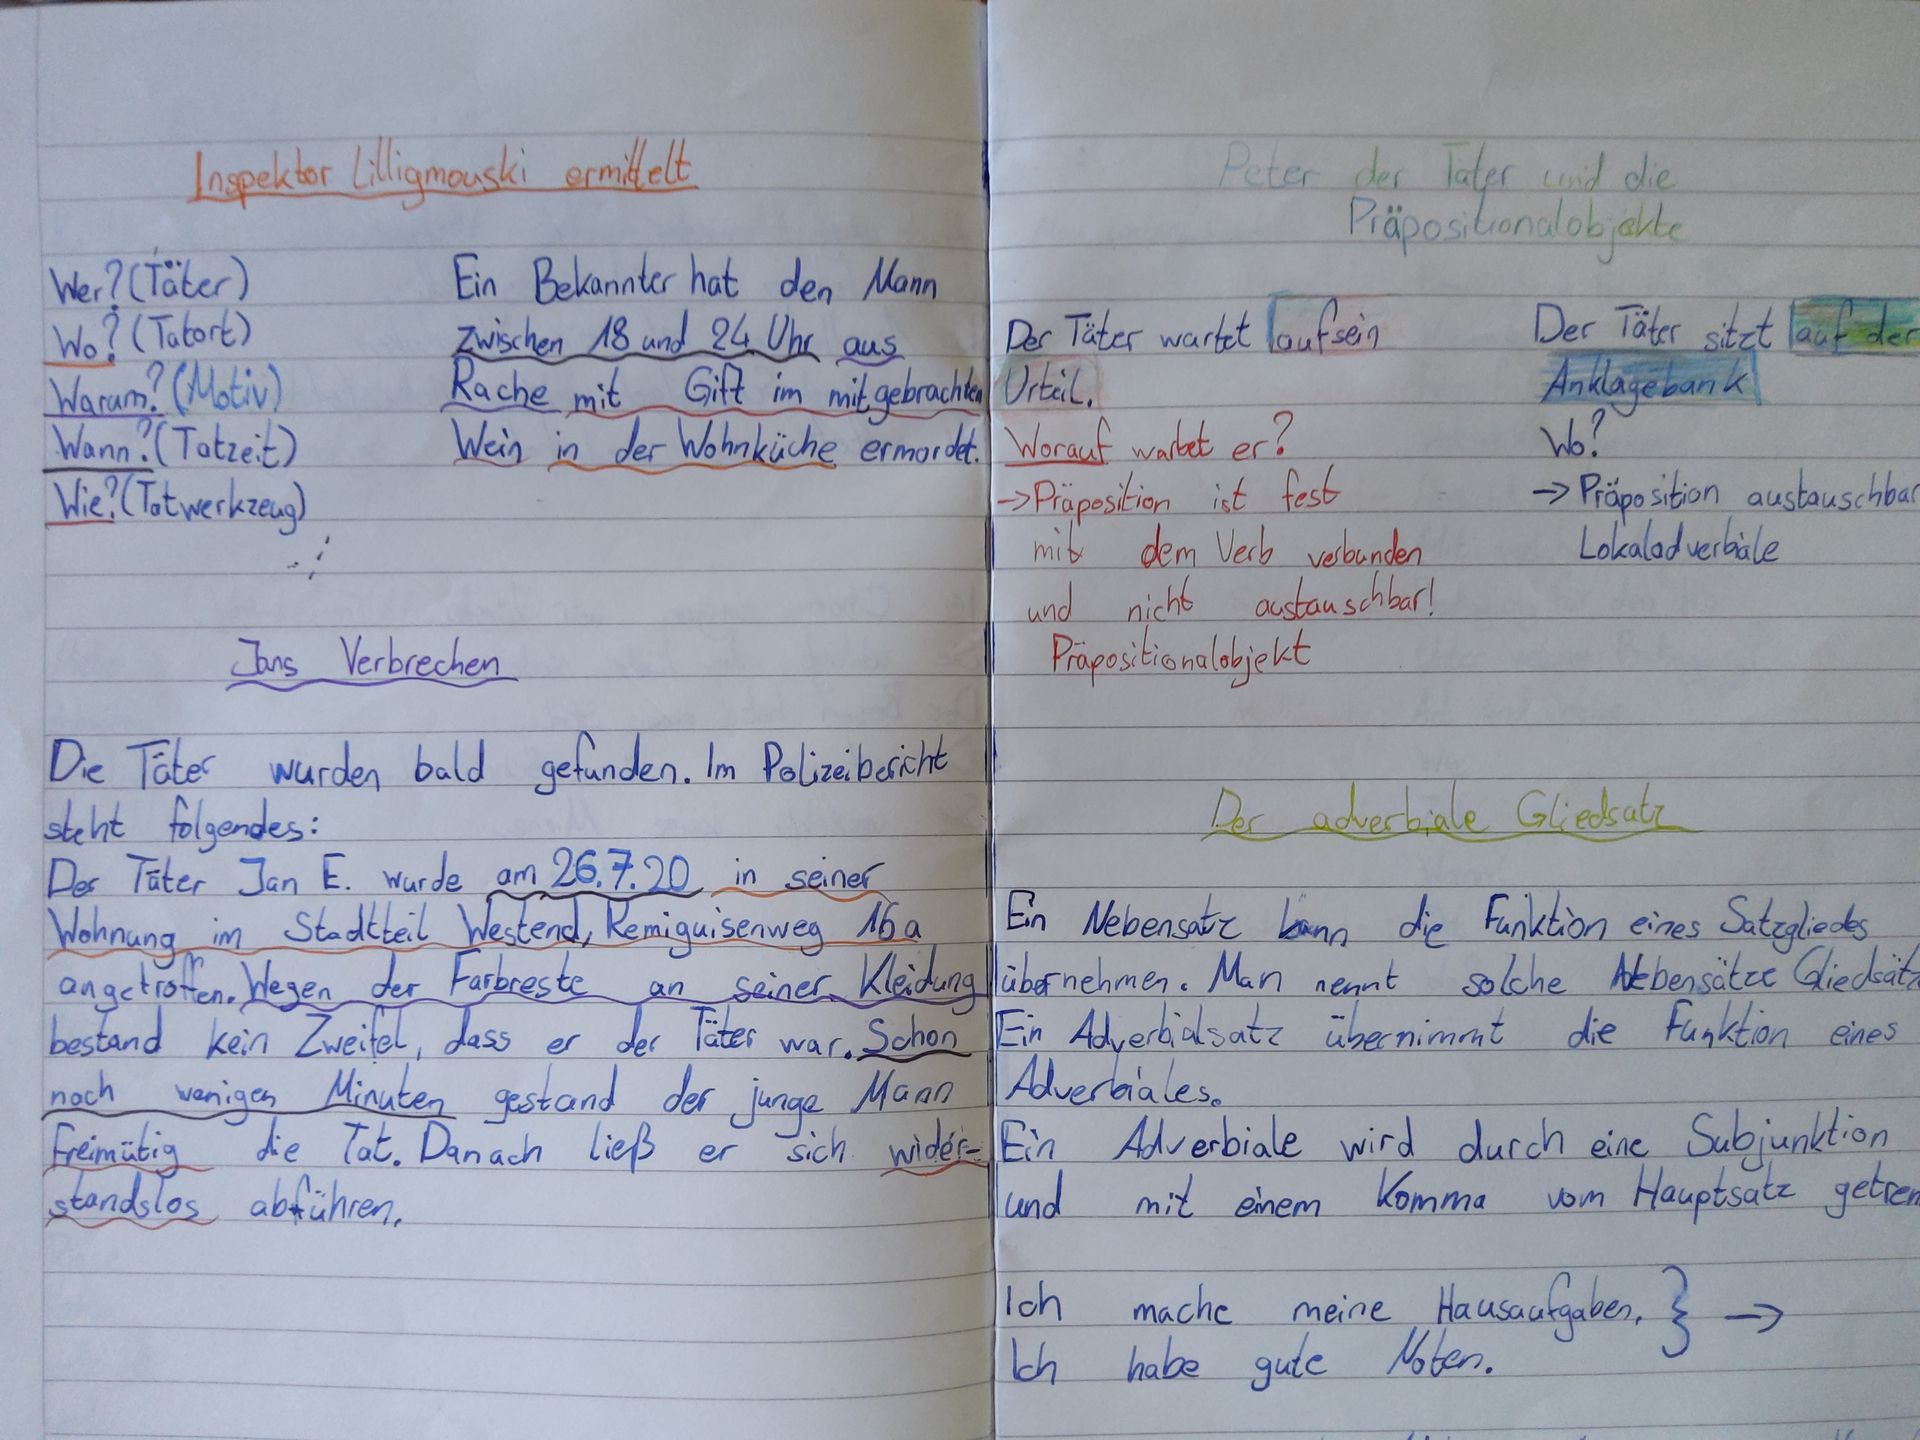 Inspektor Lilligmouski ermittelt
Wer? (Täter)
Wo? (Tatort)
Warum? (Motiv)
Wann? (Tatzeit)
Wie? (Tatwerkzeug)
Ein Bekannter hat den Mann
zwischen 18 und 24 Uhr aus
Rache mit Gift im mitgebrachten
Wein in der Wohnküche ermordet.
Jans Verbrechen
Die Täter wurden bald gefunden. Im Polizeibericht
steht folgendes:
Der Täter Jan E. wurde am 26.7.20 in seiner
Wohnung im Stadtteil Westend, Remiguisenweg 16a
angetroffen. Wegen der Farbreste an seiner Kleidung
bestand kein Zweifel, dass er der Täter war. Schon
nach wenigen Minuten gestand der junge Mann
freimütig die Tat. Danach ließ er sich wider-
standslos abführen.
Peter der Täter und die
Präpositionalobjekte
Der Täter wartet auf sein
Urteil.
Worauf wartet er?
-> Präposition ist fest
mit dem Verb verbunden
und nicht austauschbar!
Präpositionalobjekt
Der Täter sitzt auf der
Anklagebank
Wo?
-> Präposition austauschbar
Lokaladverbiale
Der adverbiale Gliedsatz
Ein Nebensatz kann die Funktion eines Satzgliedes
übernehmen. Man nennt solche Nebensätze Gliedsätz
Ein Adverbialsatz übernimmt die Funktion eines
Adverbiales.
Ein Adverbiale wird durch eine Subjunktion
und mit einem Komma vom Hauptsatz getren
Ich mache meine Hausaufgaben. } ->
Ich habe gute Noten.